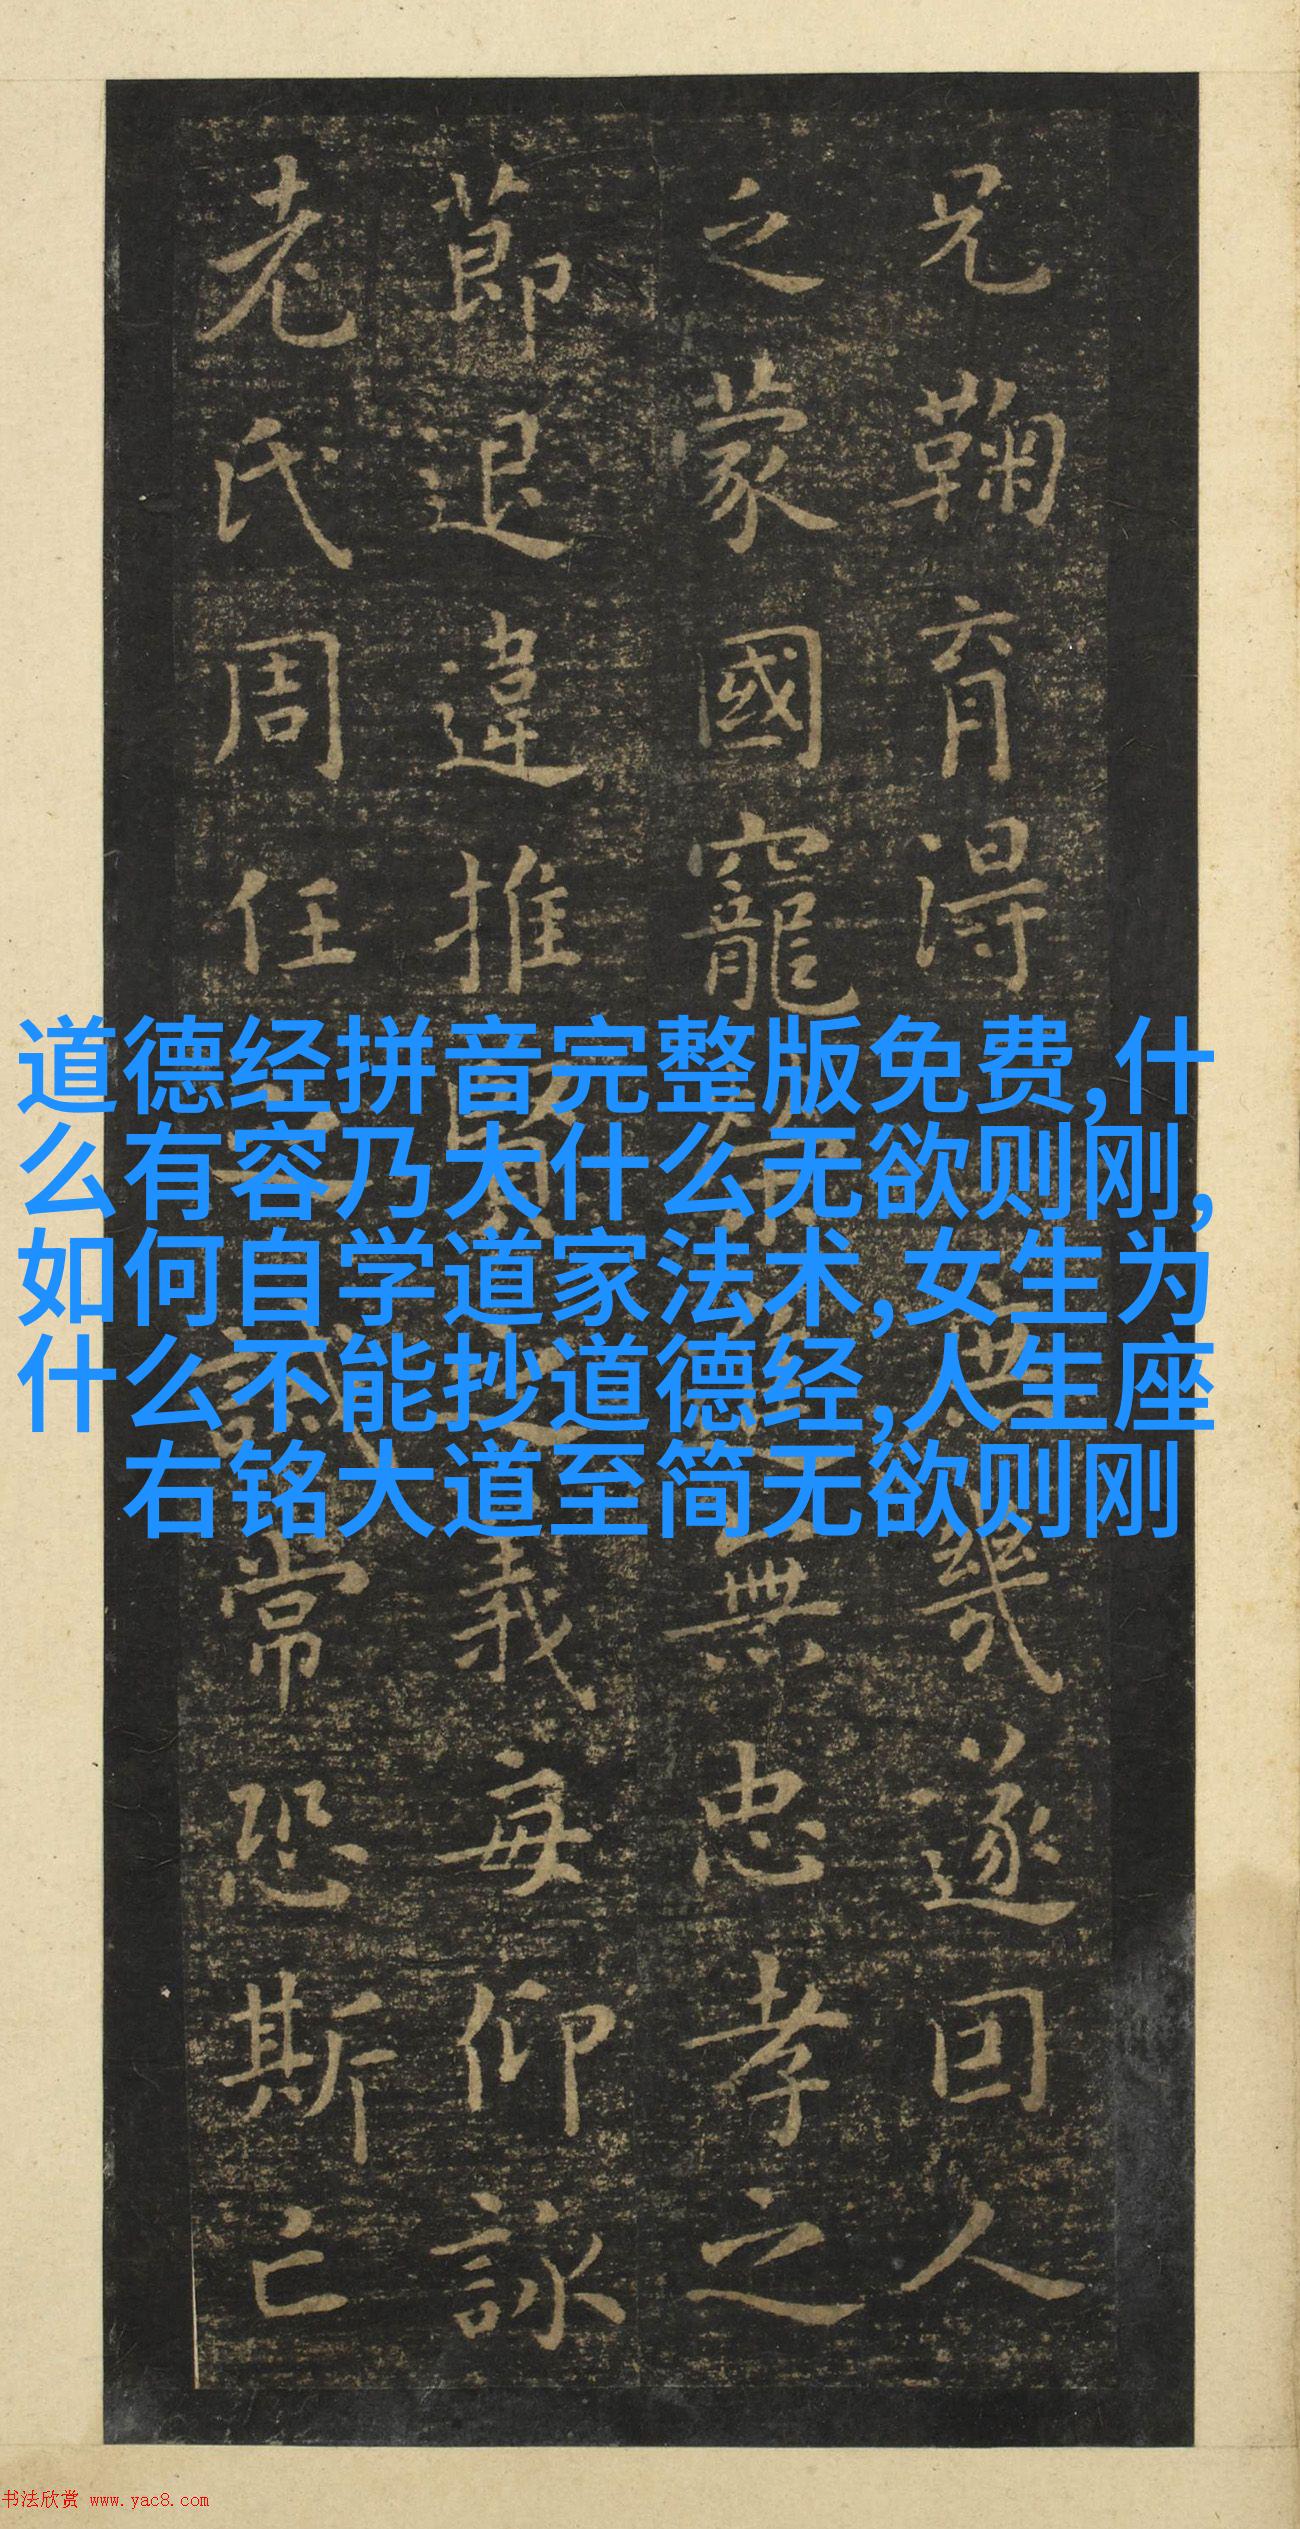 兄鞠育得庶幾遂因人
乏蒙國寵榮進無忠孝之
莭退違推賢之義每仰詠
老氏周任之誡常恐斯亡
道德经拼音完整版免费,什
么有容乃大什么无欲则刚,
如何自学道家法术,女生为
什么不能抄道德经,人生座
右铭大道至简无欲则刚
书法欣赏 www.yac8.com